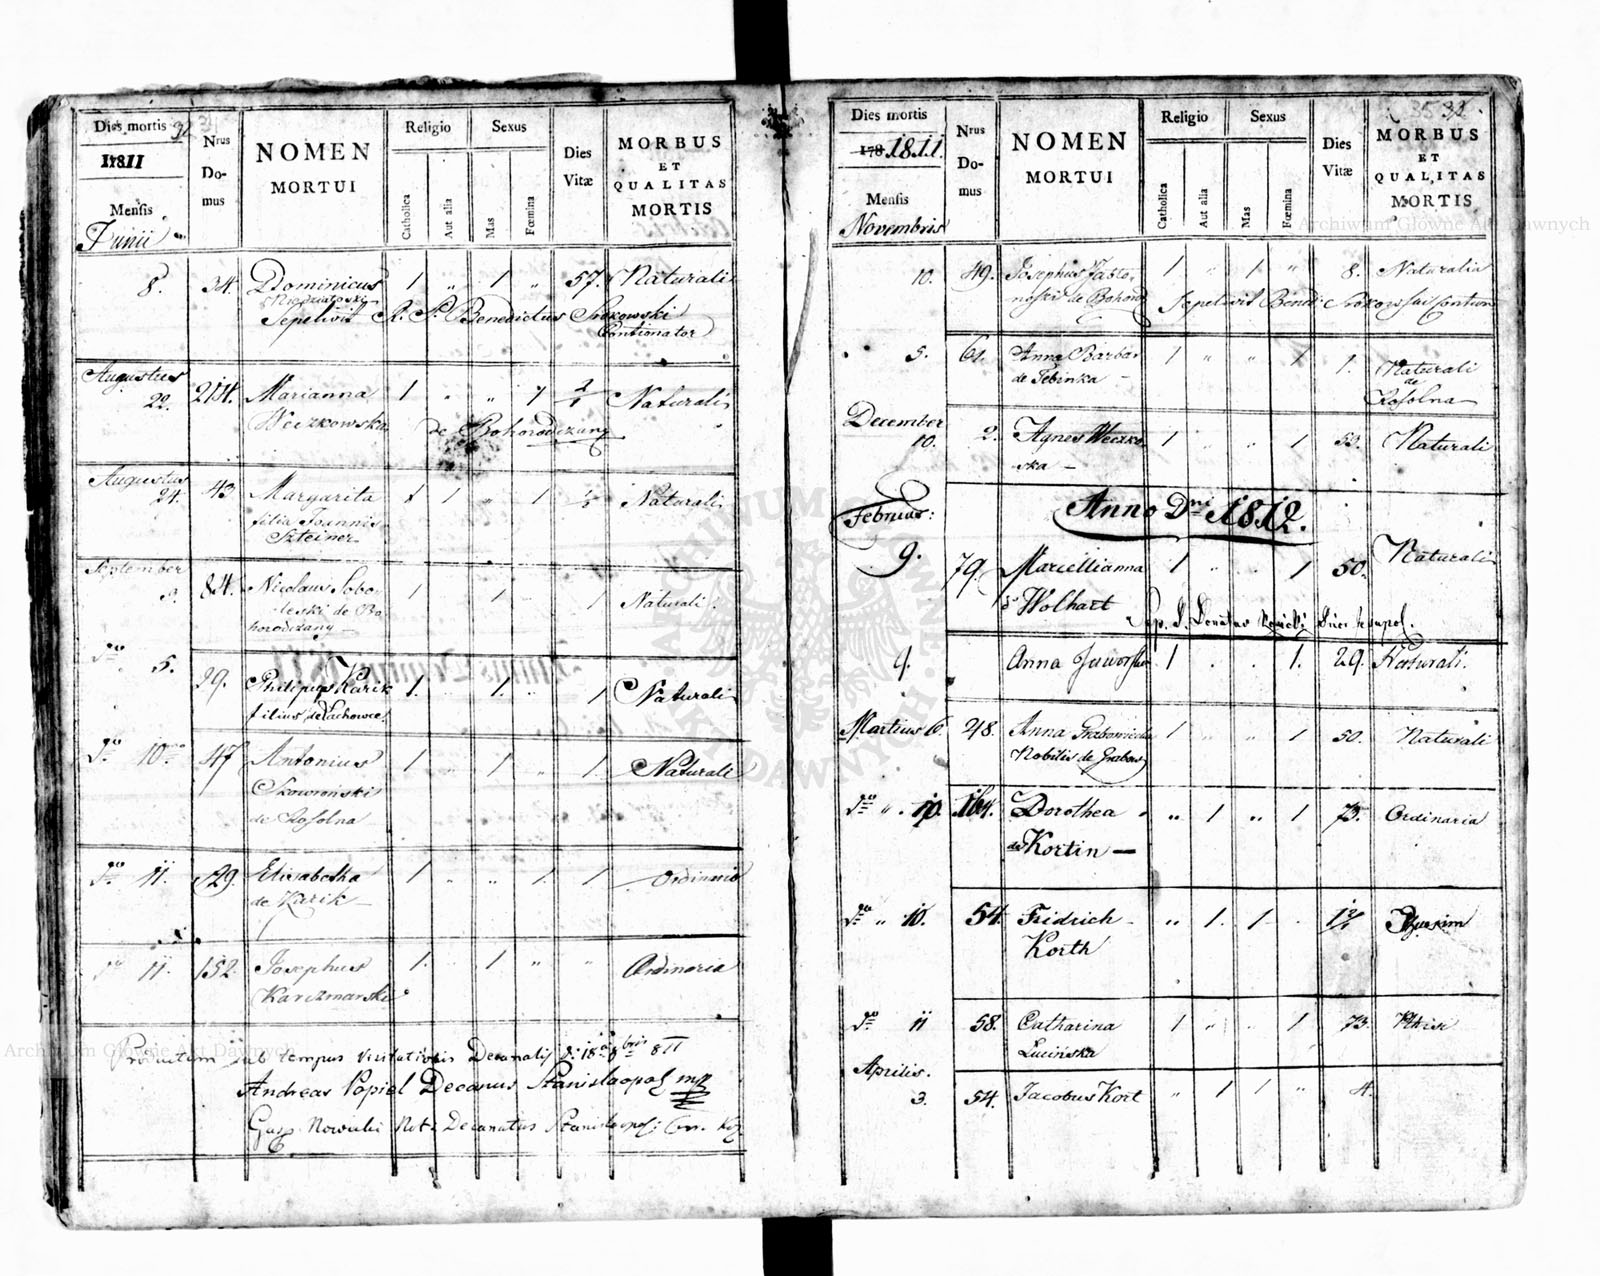 Dies mortis
1811
Mensis
Junii
Nrus
Do-
mus
NOMEN
MORTUI
Religio
Catholica
Aut alia
Sexus
Mas
Fœmina
Dies
Vitæ
MORBUS
ET
QUALITAS
MORTIS
8. 34. Dominicus 1 „ 1 „ 57. Naturali
Sepelivit R. P. Benedictus Srokowski
Contionator
Augustus
22. 214. Marianna 1 „ „ 1 Naturali
Weczkowska de Bohorodczany
Augustus
24. 43 Margarita 1 1 „ 1 Naturali
filia Joannis
Szteiner
September
84. Nicolaus Sobo-
leski de Bo- 1 1 1 Naturali
horodczany
do 5. 29. Philippus Karik 1. 1. 1 Naturali
filius de Lachowce
do 10 47 Antonius 1 1 1. Naturali
Skowroński
de Rosolna
do 11. 129. Elisabetha 1 „ „ 1. 1 Ordinaria
de Karik
do 11. 152. Josephus 1. 1 „ „ Ordinaria
Karczmarski
Productum sub tempus Visitationis Decanalis d. 18a 8bris 811
Andreas Popiel Decanus Stanislaopol mp
Gasp. Nowicki Not. Decanatus Stanislaopol:
35 32.
Dies mortis
178 1811.
Mensis
Novembris
Nrus
Do-
mus
NOMEN
MORTUI
Religio
Catholica
Aut alia
Sexus
Mas
Fœmina
Dies
Vitæ
MORBUS
ET
QUALITAS
MORTIS
10. 49. Josephus Jabło- 1 „ 1 „ 8. Naturalia
noski de Bohorod Sepelivit Bened: Srokowski Contion
5. 61. Anna Barbar 1 „ „ 1 1. Naturali
de Tebinka de
Rosolna
December
10. 2. Agnes Weczko- 1 1 53. Naturali
ska
Anno Dni 1812.
Februar:
9. 79. Marcellianna 1 1 50. Naturali
Wolhart
Sep. P. Donatus
9. Anna Jawors 1 1. 29. Naturali.
Martius 6. 48. Anna Grabowiecka 1 1 50. Naturali
Nobilis de Grabow
do „ 10. 164. Dorothea „ 1 „ 1 73. Ordinaria
de Kortin —
do „ 10. 54. Fridrich „ 1. 1
Korth
do 11 58. Catharina 1 „ 1 73.
Lucińska
Aprilis.
3. 54. Jacobus Kort „ 1 1 „ 4.
Archiwum Główne Akt Dawnych
Archiwum Główne Akt Dawnych
ARCHIWUM GŁÓWNE AKT DAWNYCH